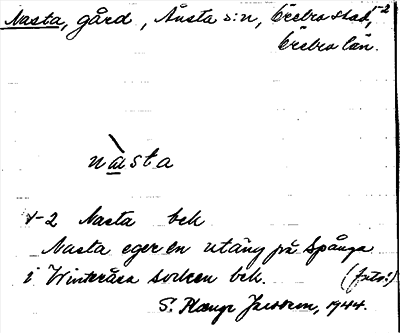 Nasta, gård, Ånsta s:n, Örebro stad, 1-2
Örebro län.
nàsta
1-2 Nasta bek
Nasta eger en utäng på Spånga
i Winteråsa socken bek. (jato:)
S. Plange Jacobson, 1944.